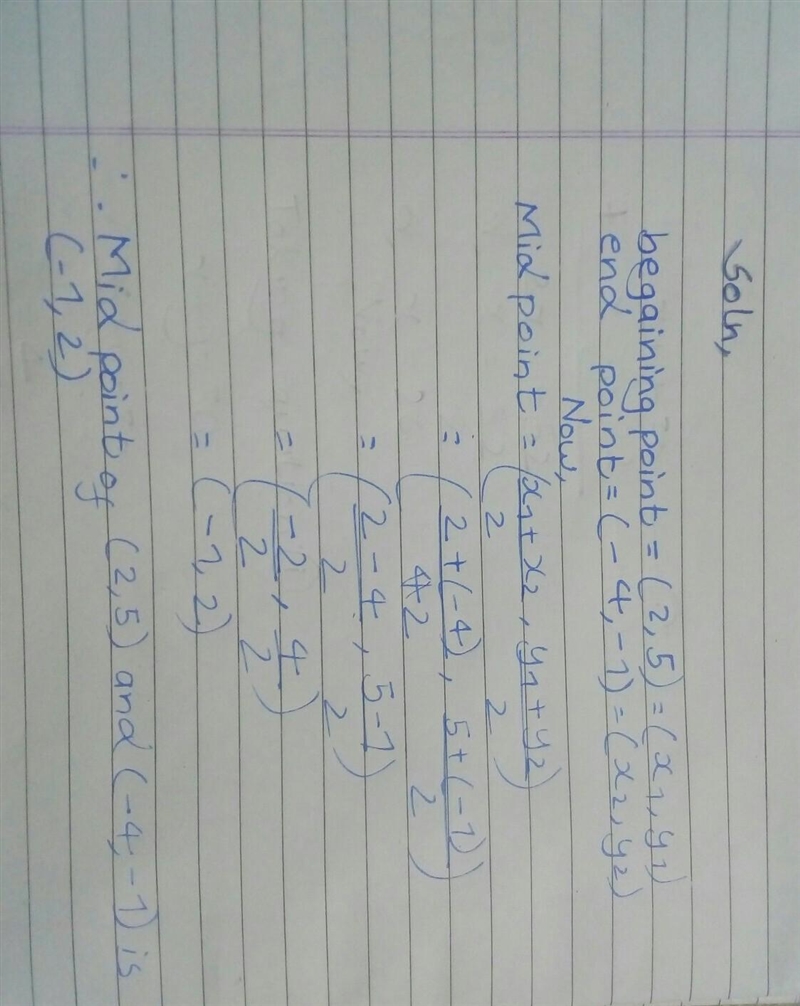 Soln,
begaining point = (2,5) = (x1, y1)
end point = (-4,-1) = (x2, y2)
Now,
Mid point = (x1+x2/2, y1+y2/2)
= (2+(-4)/2, 5+(-1)/2)
= (2-4/2, 5-1/2)
= (-2/2, 4/2)
= (-1,2)
∴ Mid point of (2,5) and (-4,-1) is
(-1,2)